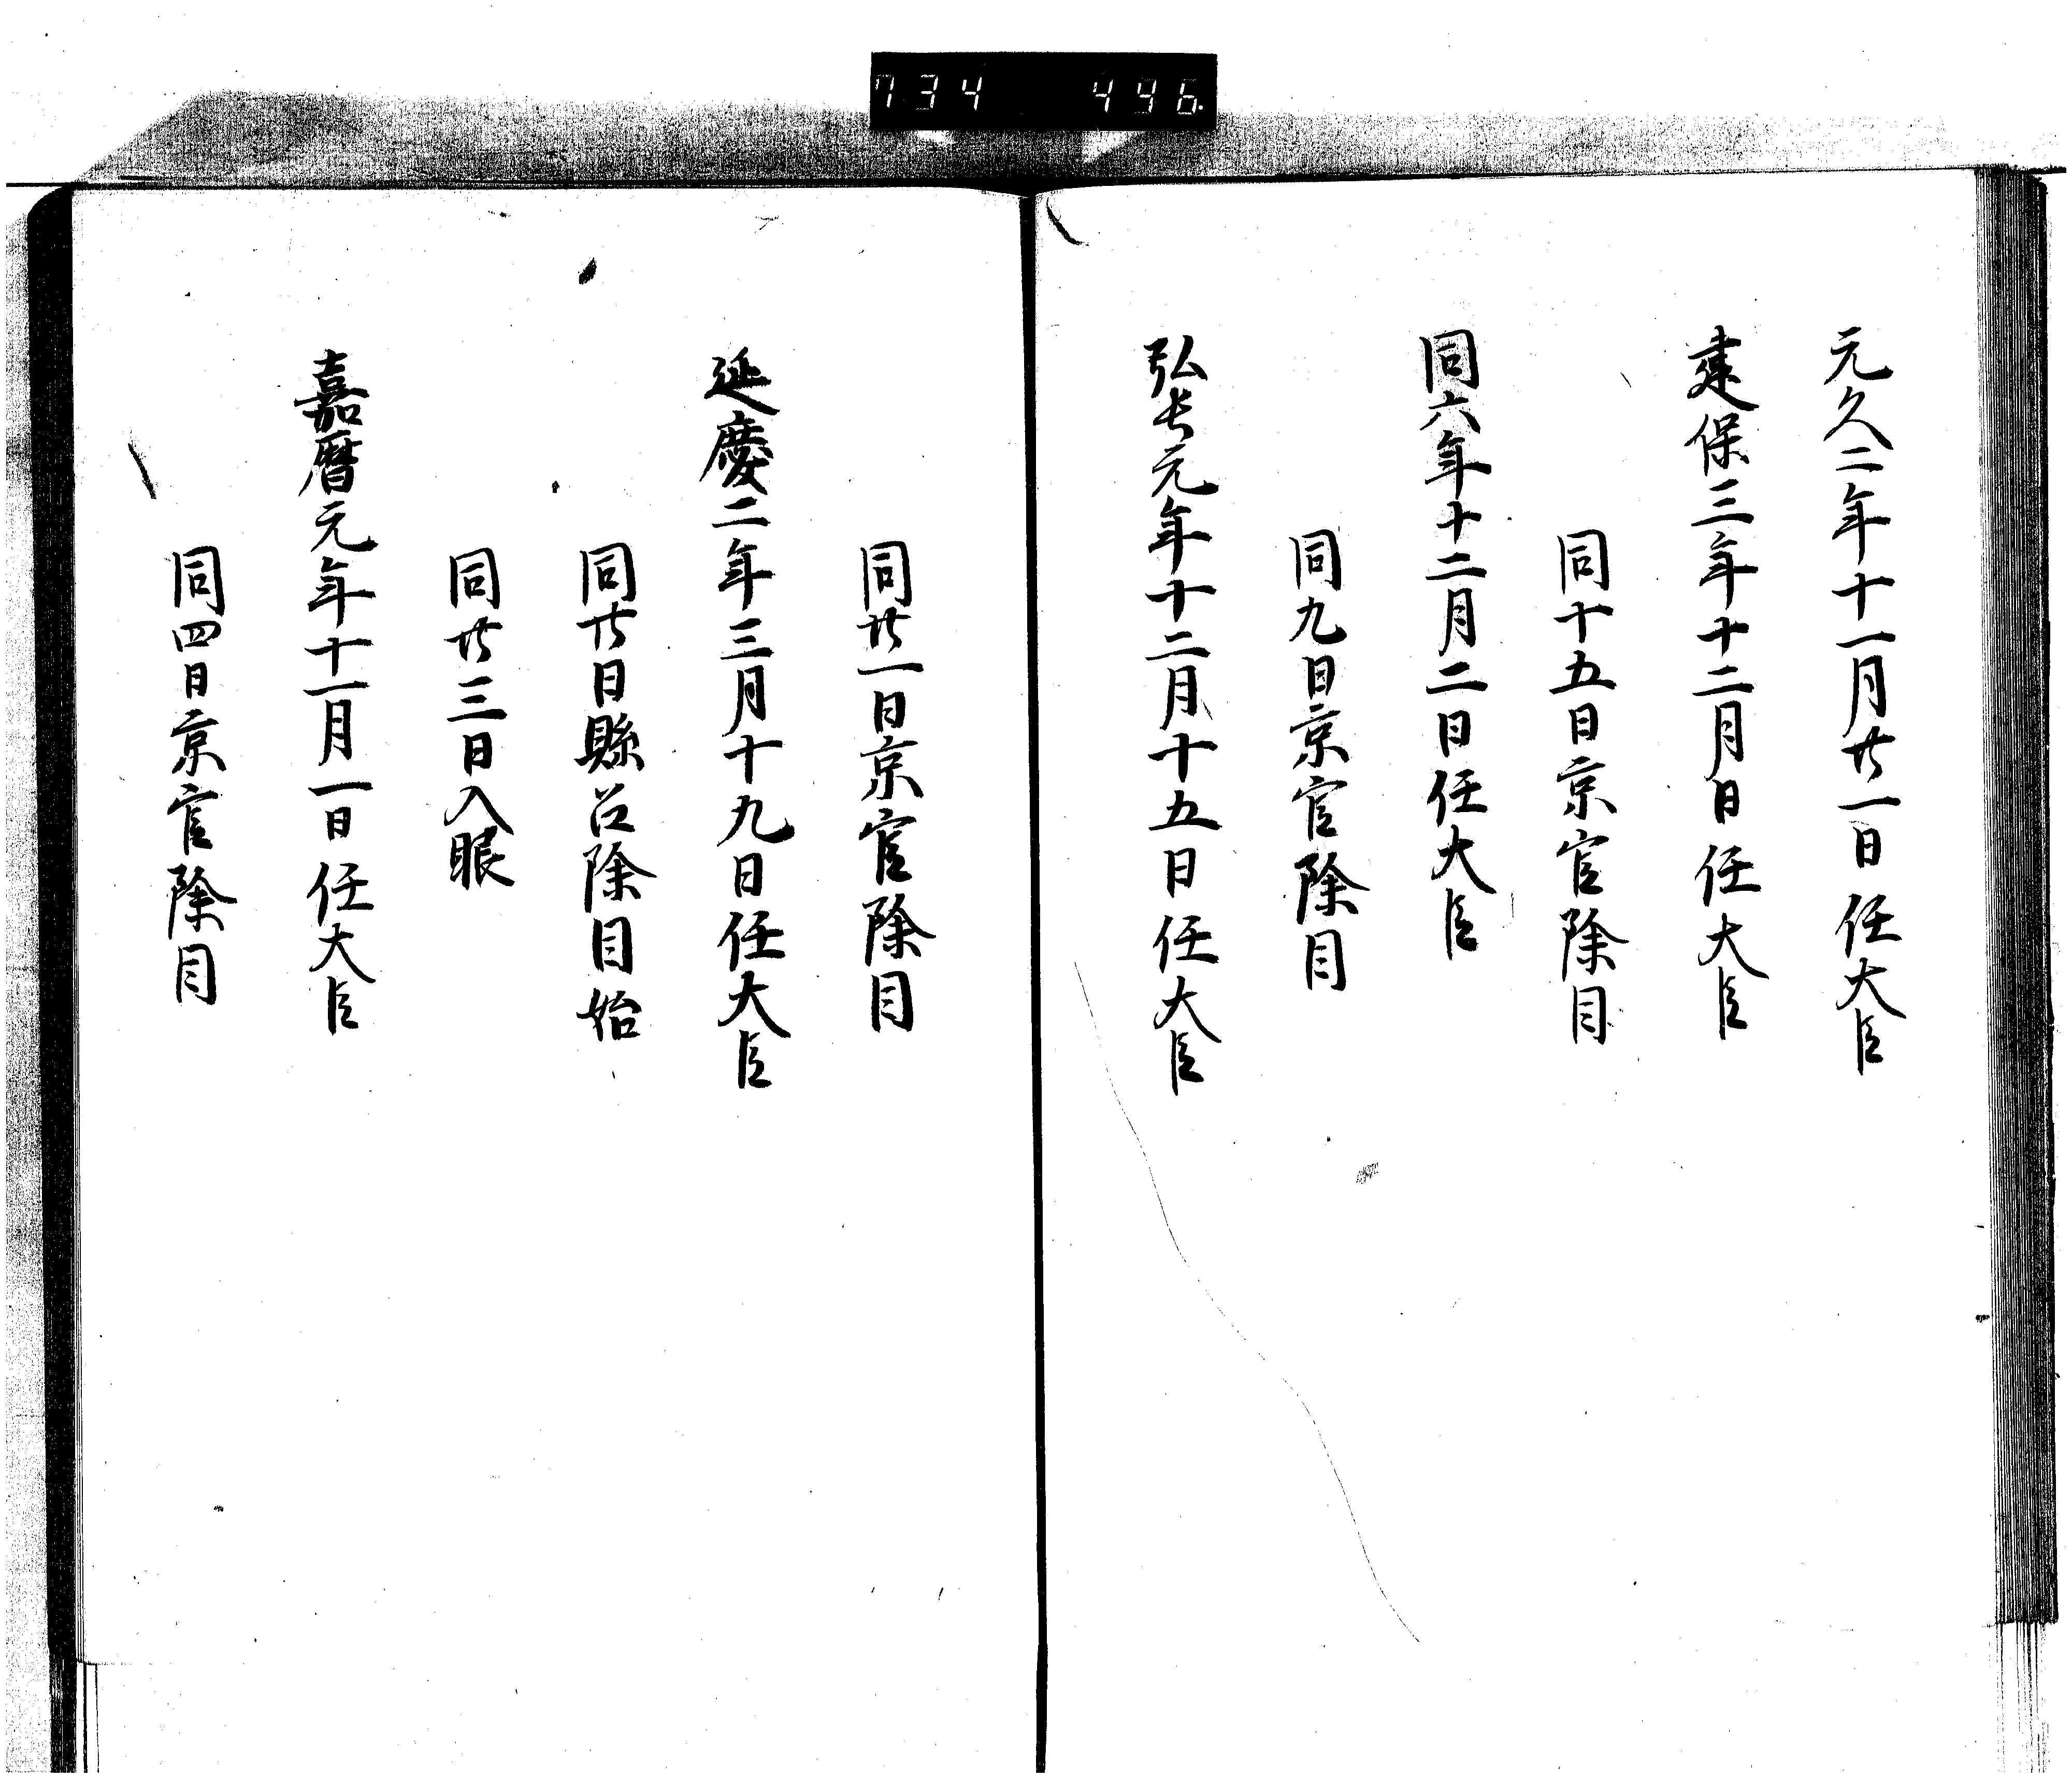 734 496
元久二年十一月廿一日任大臣
建保三年十二月日任大臣
同十五日京官除目
同六年十二月二日任大臣
同九日京官除目
弘長元年十二月十五日任大臣
同廿一日京官除目
延慶二年三月十九日任大臣
同廿日縣召除目始
同廿三日入眼
嘉暦元年十一月一日任大臣
同四日京官除目